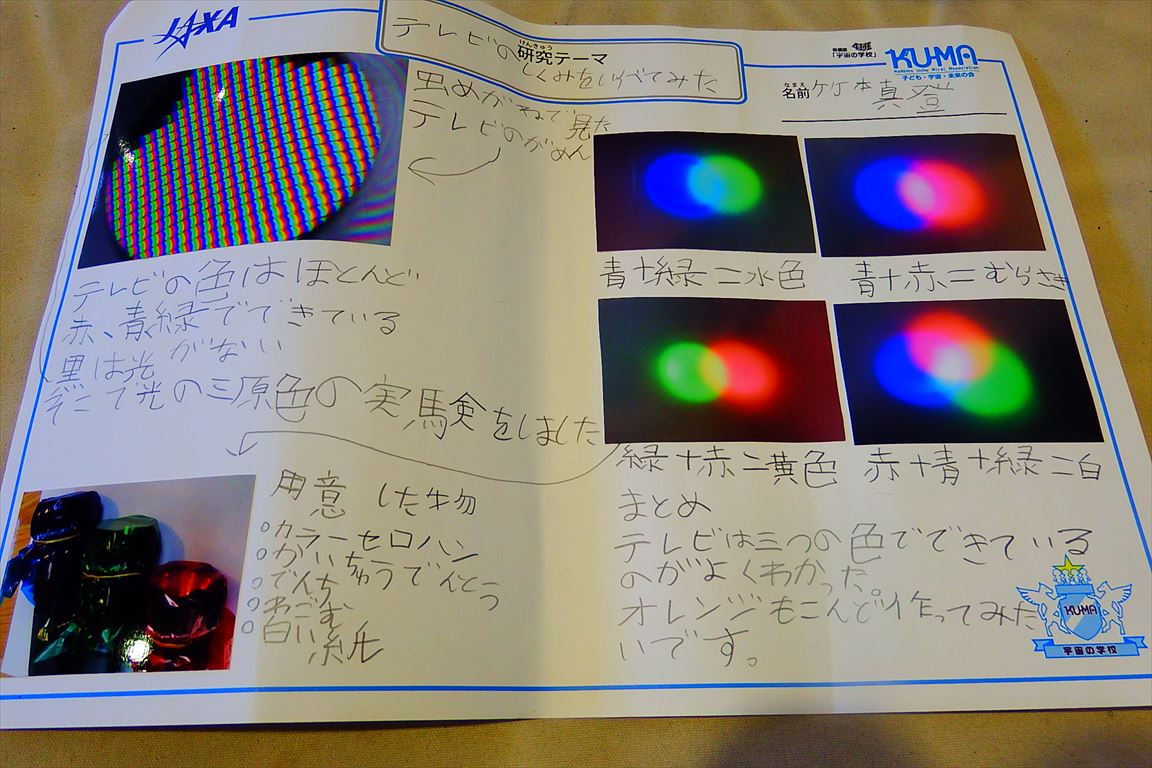 JAXA
けんきゅう
研究テーマ
テレビの
しくみをしらべてみた
「宇宙の学校」
KU-MA
Kodomo Uchu Mirai Association
子ども・宇宙・未来の会
なまえ
名前 竹本真登
虫めがねで見た
テレビのがめん
テレビの色はほとんど
赤、青緑でできている
黒は光がない
そこで光の三原色の実験をしました
用意した物
カラーセロハン
かいちゅうでんとう
でんち
わごむ
白い紙
青+緑=水色
青+赤=むらさき
緑+赤=黄色
赤+青+緑=白
まとめ
テレビは三つの色でできている
のがよくわかった。
オレンジもこんど作ってみた
いです。
KU-MA
宇宙の学校